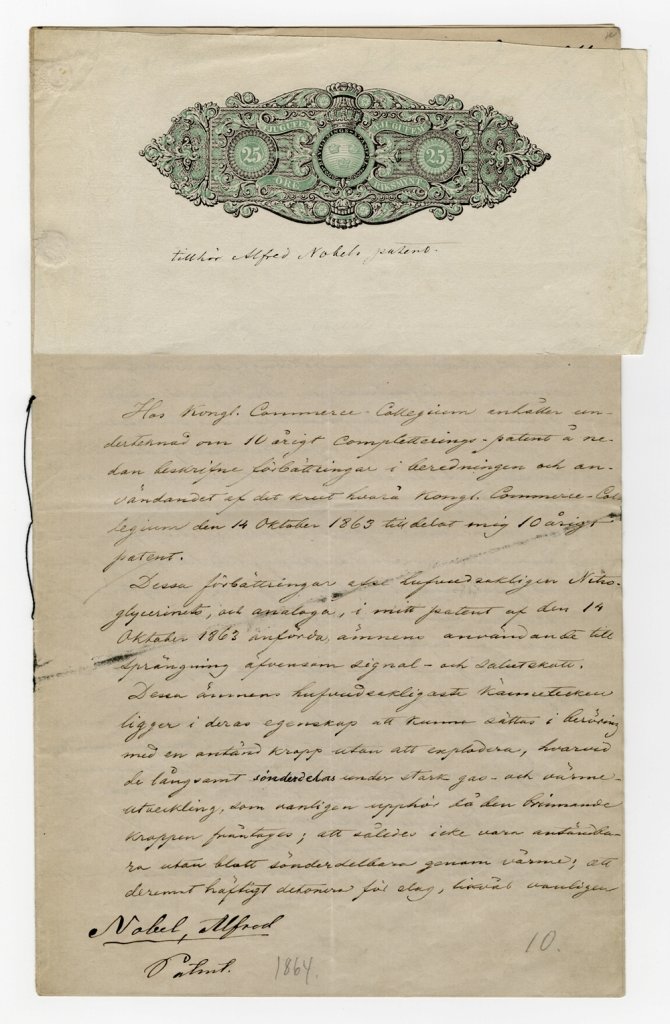 TJUGUFEM
TJUGUFEM
25
25
ÖRE
RIKSMYNT
tillhör Alfred Nobels patent.
Hos Kongl. Commerce-Collegium anhåller un-
dertecknad om 10 årigt Completterings-patent å ne-
dan beskrifne förbättringar i beredningen och an-
vändandet af det krut hvarå Kongl. Commerce-Col-
legium den 14 Oktober 1863 tilldelat mig 10 årigt
patent.
Dessa förbättringar afse hufvudsakligen Nitro-
glycerinets, och analoga, i mitt patent af den 14
Oktober 1863 anförda, ämnens användande till
sprängning äfvensom signal- och salutskott.
Dessa ämnens hufvudsakligaste kännetecken
ligger i deras egenskap att kunna sättas i beröring
med en antänd kropp utan att explodera, hvarvid
de långsamt sönderdelas under stark gas- och värme-
utveckling, som vanligen upphör så den brinnande
kroppen fråntages; att således icke vara antändba-
ra utan blott sönderdelbara genom värme; att
deremot häftigt detonera för slag, likväl vanligen
Nobel, Alfred
Patent.
1864.
10.